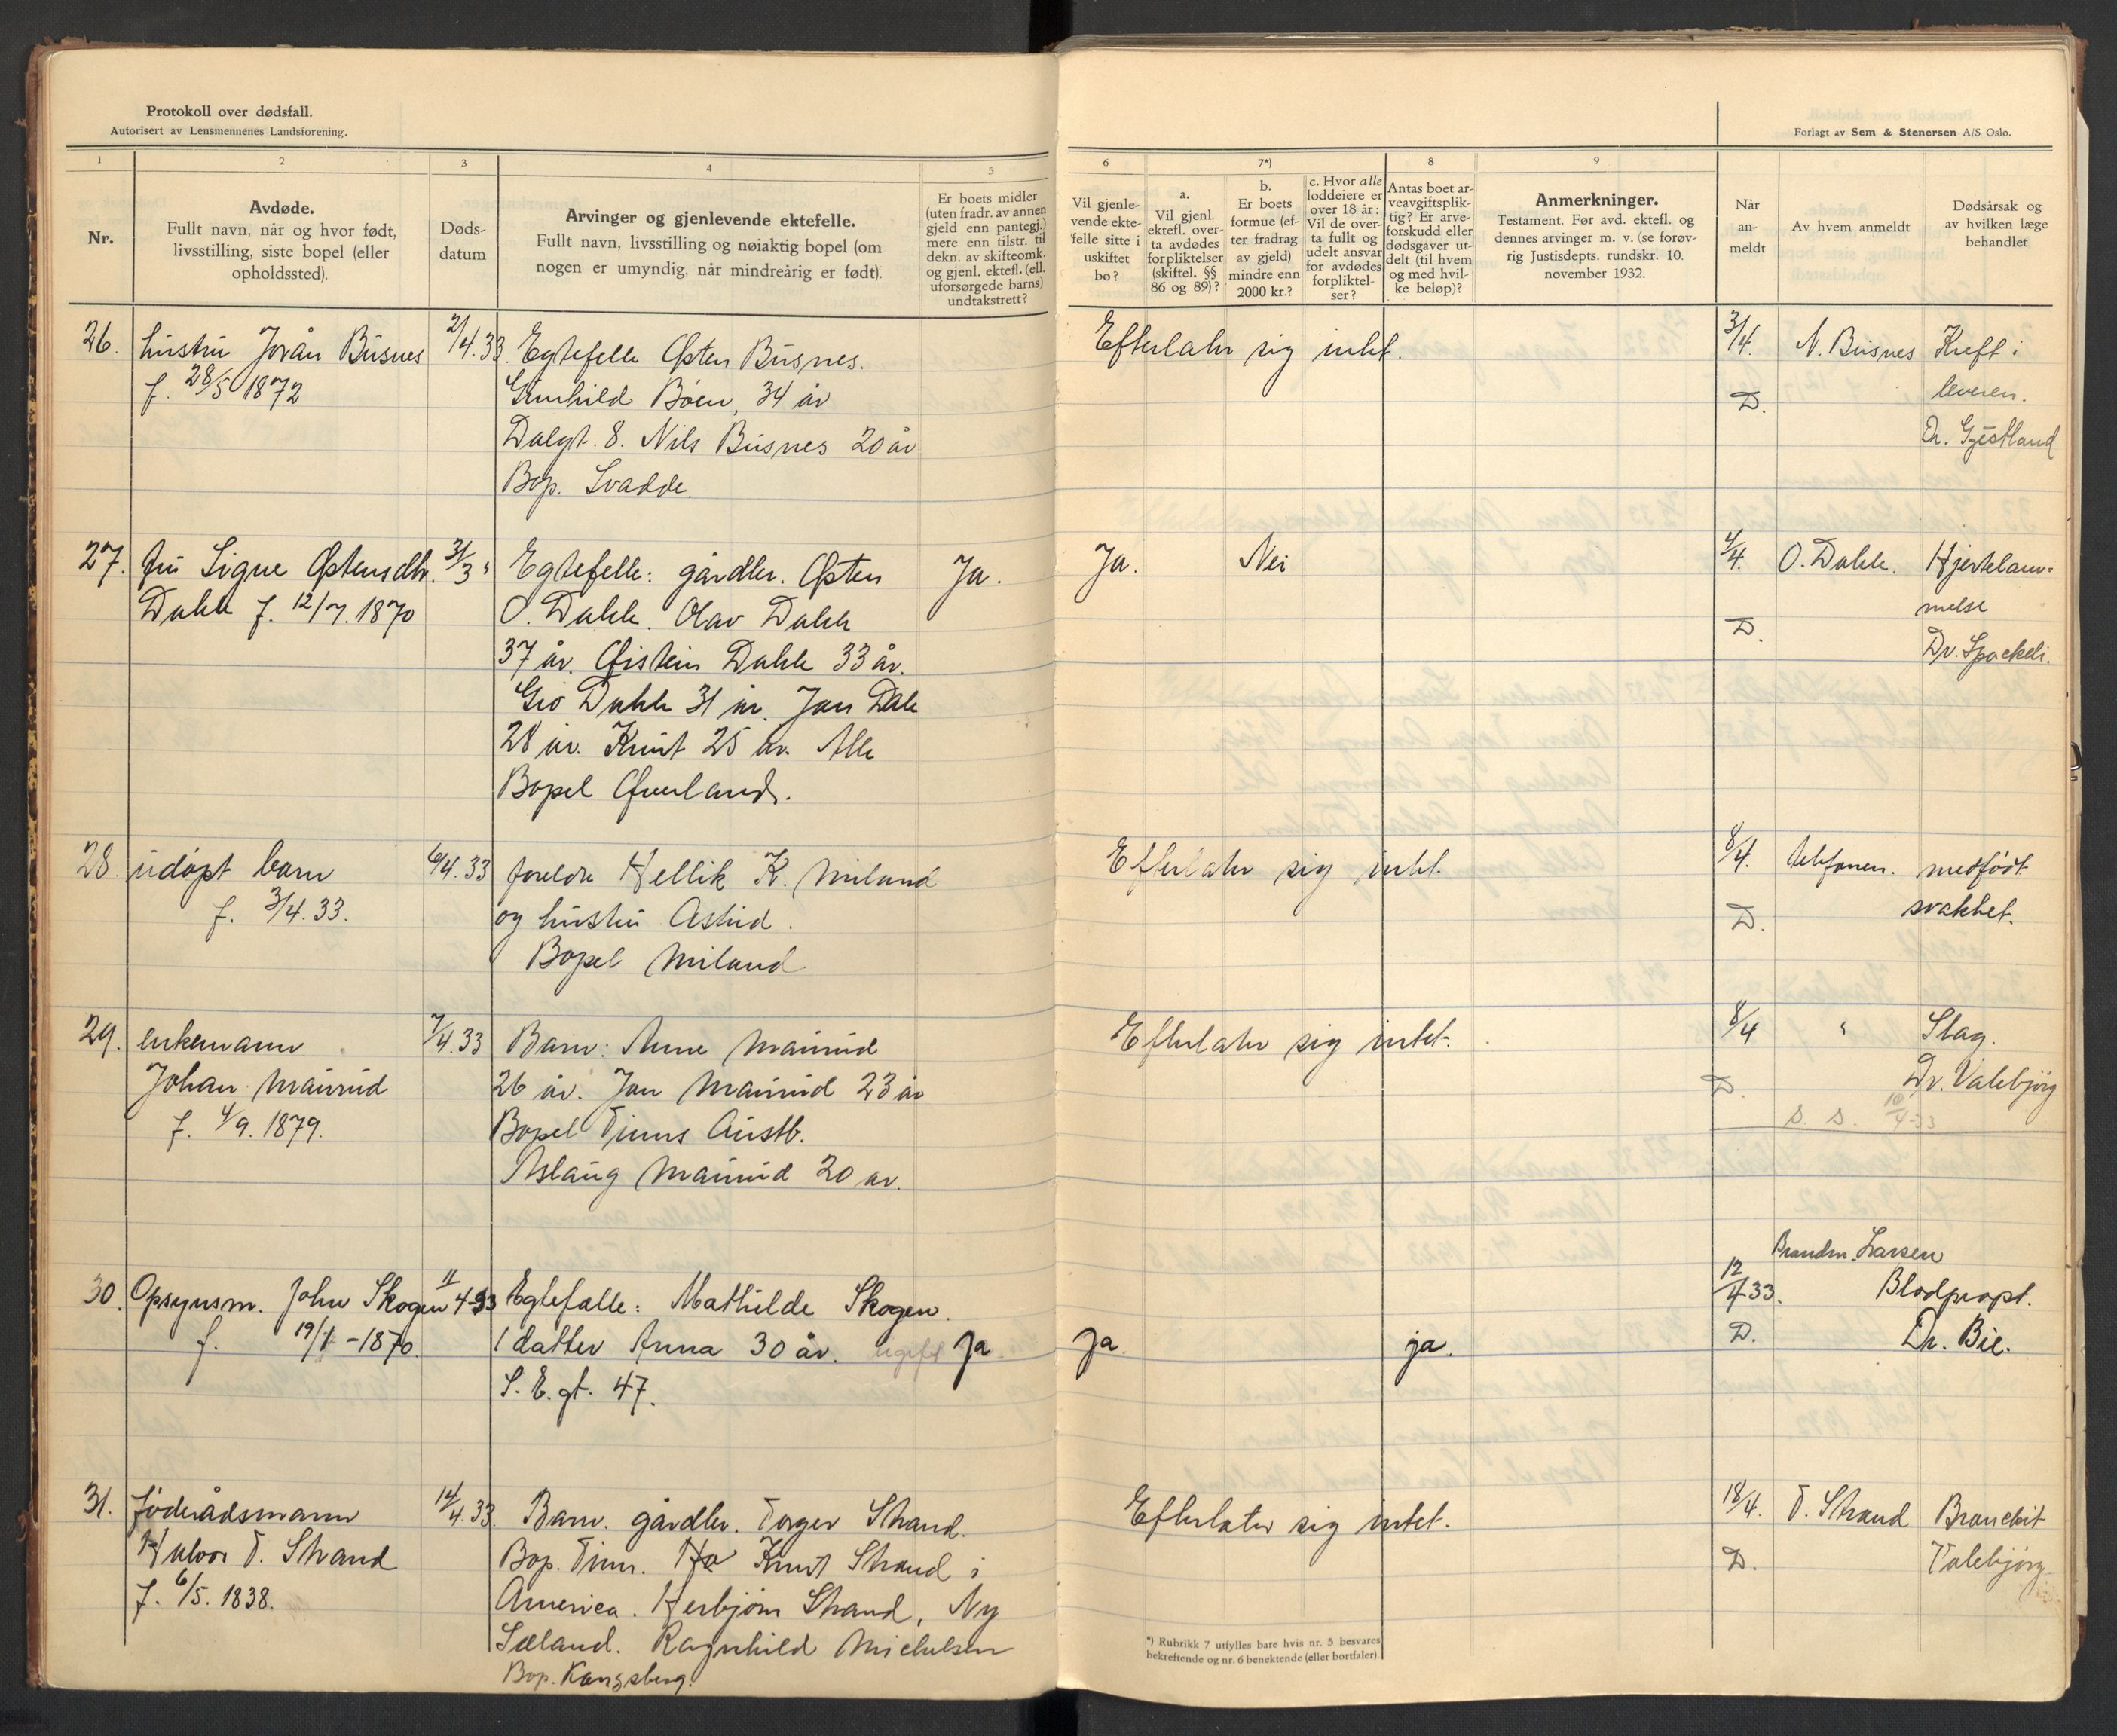 Protokoll over dødsfall.
Autorisert av Lensmennenes Landsforening.
Forlagt av Sem & Stenersen A/S Oslo.
1
2
3
4
5
6
7*)
8
9
Nr.
Avdøde.
Fullt navn, når og hvor født,
livsstilling, siste bopel (eller
opholdssted).
Døds-
datum
Arvinger og gjenlevende ektefelle.
Fullt navn, livsstilling og nøiaktig bopel (om
nogen er umyndig, når mindreårig er født).
Er boets midler
(uten fradr. av annen
gjeld enn pantegj.)
mere enn tilstr. til
dekn. av skifteomk.
og gjenl. ektefl. (ell.
uforsørgede barns)
undtakstrett?
Vil gjenle-
vende ekte-
felle sitte i
uskiftet
bo?
a.
Vil gjenl.
ektefl. over-
ta avdødes
forpliktelser
(skiftel. §§
86 og 89)?
b.
Er boets
formue (ef-
ter fradrag
av gjeld)
mindre enn
2000 kr.?
c. Hvor alle
loddeiere er
over 18 år:
Vil de over-
ta fullt og
udelt ansvar
for avdødes
forpliktel-
ser?
Antas boet ar-
veavgiftsplik-
tig? Er arve-
forskudd eller
dødsgaver ut-
delt (til hvem
og med hvil-
ke beløp)?
Anmerkninger.
Testament. Før avd. ektefl. og
dennes arvinger m. v. (se forøv-
rig Justisdepts. rundskr. 10.
november 1932.
Når
an-
meldt
Av hvem anmeldt
Dødsårsak og
av hvilken læge
behandlet
26.
hustru Jorån Busnes
f. 28/5 1872
2/4.33.
Egtefelle Østen Busnes.
Gunhild Bøen, 34 år
Dalgt. 8. Nils Busnes 20 år
Bop. Svadde.
Efterlater sig intet.
3/4.
D.
N. Busnes
Kreft i
leveren.
Dr. Gjestland
27.
fru Signe Østensdtr.
Dahle f. 12/7. 1870
31/3 "
Egtefelle: gårdbr. Østen
O. Dahle. Olav Dahle
37 år. Øistein Dahle 33 år.
Gro Dahle 31 år. Jan Dale
28 år. Knut 25 år. Alle
Bopel Øverland.
Ja.
Ja.
Nei
4/4.
D.
O. Dahle.
Hjertelam-
melse
Dr. Spockeli.
28.
udøpt barn
f. 3/4. 33.
6/4.33
foreldre Hellik K. Miland
og hustru Astrid.
Bopel Miland
Efterlater sig intet.
8/4.
D.
telefonen.
medfødt
svakhet.
29.
enkemann
Johan Maurud
f. 4/9. 1879.
7/4.33
Barn: Anne Maurud
26 år. Jan Maurud 23 år
Bopel Tinns Austb.
Aslaug Maurud 20 år.
Efterlater sig intet.
8/4
D.
"
Slag.
Dr. Valebjørg
S. S. 10/4-33
30.
Opsynsm. John Skogen
f. 19/1 - 1870.
11/4-33
Egtefælle: Mathilde Skogen.
1 datter Anna 30 år. ugift
S. E. gt. 47.
Ja
Ja.
ja.
12/4 33.
D.
Brandm. Larsen
Blodpropt.
Dr. Bie.
31.
føderådsmann
Halvor T. Strand
f. 6/5. 1838.
14/4.33.
Barn. gårdbr. Torger Strand.
Bop. Tinn. Knut Strand i
America. Herbjørn Strand, Ny
Sæland. Ragnhild Michelsen
Bop. Kongsberg.
Efterlater sig intet.
18/4.
D.
T. Strand
Bronchit
Valebjørg
*) Rubrikk 7 utfylles bare hvis nr. 5 besvares
bekreftende og nr. 6 benektende (eller bortfaler).